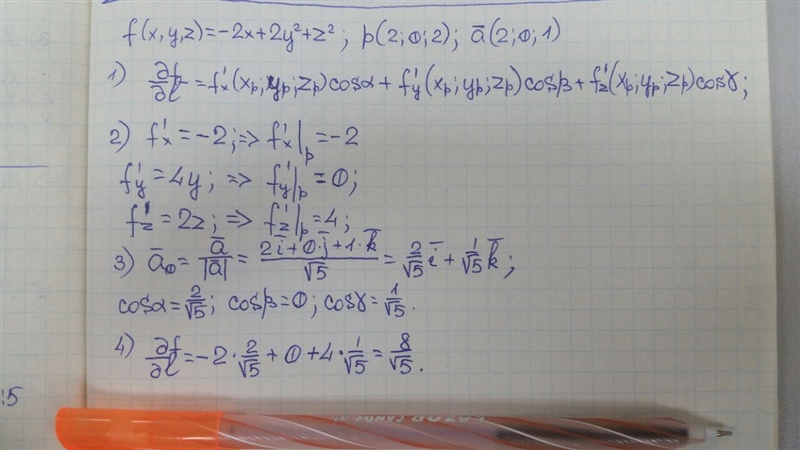 f(x,y,z)=-2x+2y²+z²; p(2;0;2); a̅(2;0;1)
1) ∂f/∂l=f'x(xp;yp;zp)cosα+f'y(xp;yp;zp)cosβ+f'z(xp;yp;zp)cosγ;
2) f'x=-2;=>f'x|p=-2
f'y=4y; => f'y|p=0;
f'z=2z; => f'z|p=4;
3) a̅₀=a̅/|a̅|=(2i̅+0·j̅+1·k̅)/√5=2/√5 i̅+1/√5 k̅;
cosα=2/√5; cosβ=0; cosγ=1/√5.
4) ∂f/∂l=-2·2/√5+0+4·1/√5=8/√5.
:5